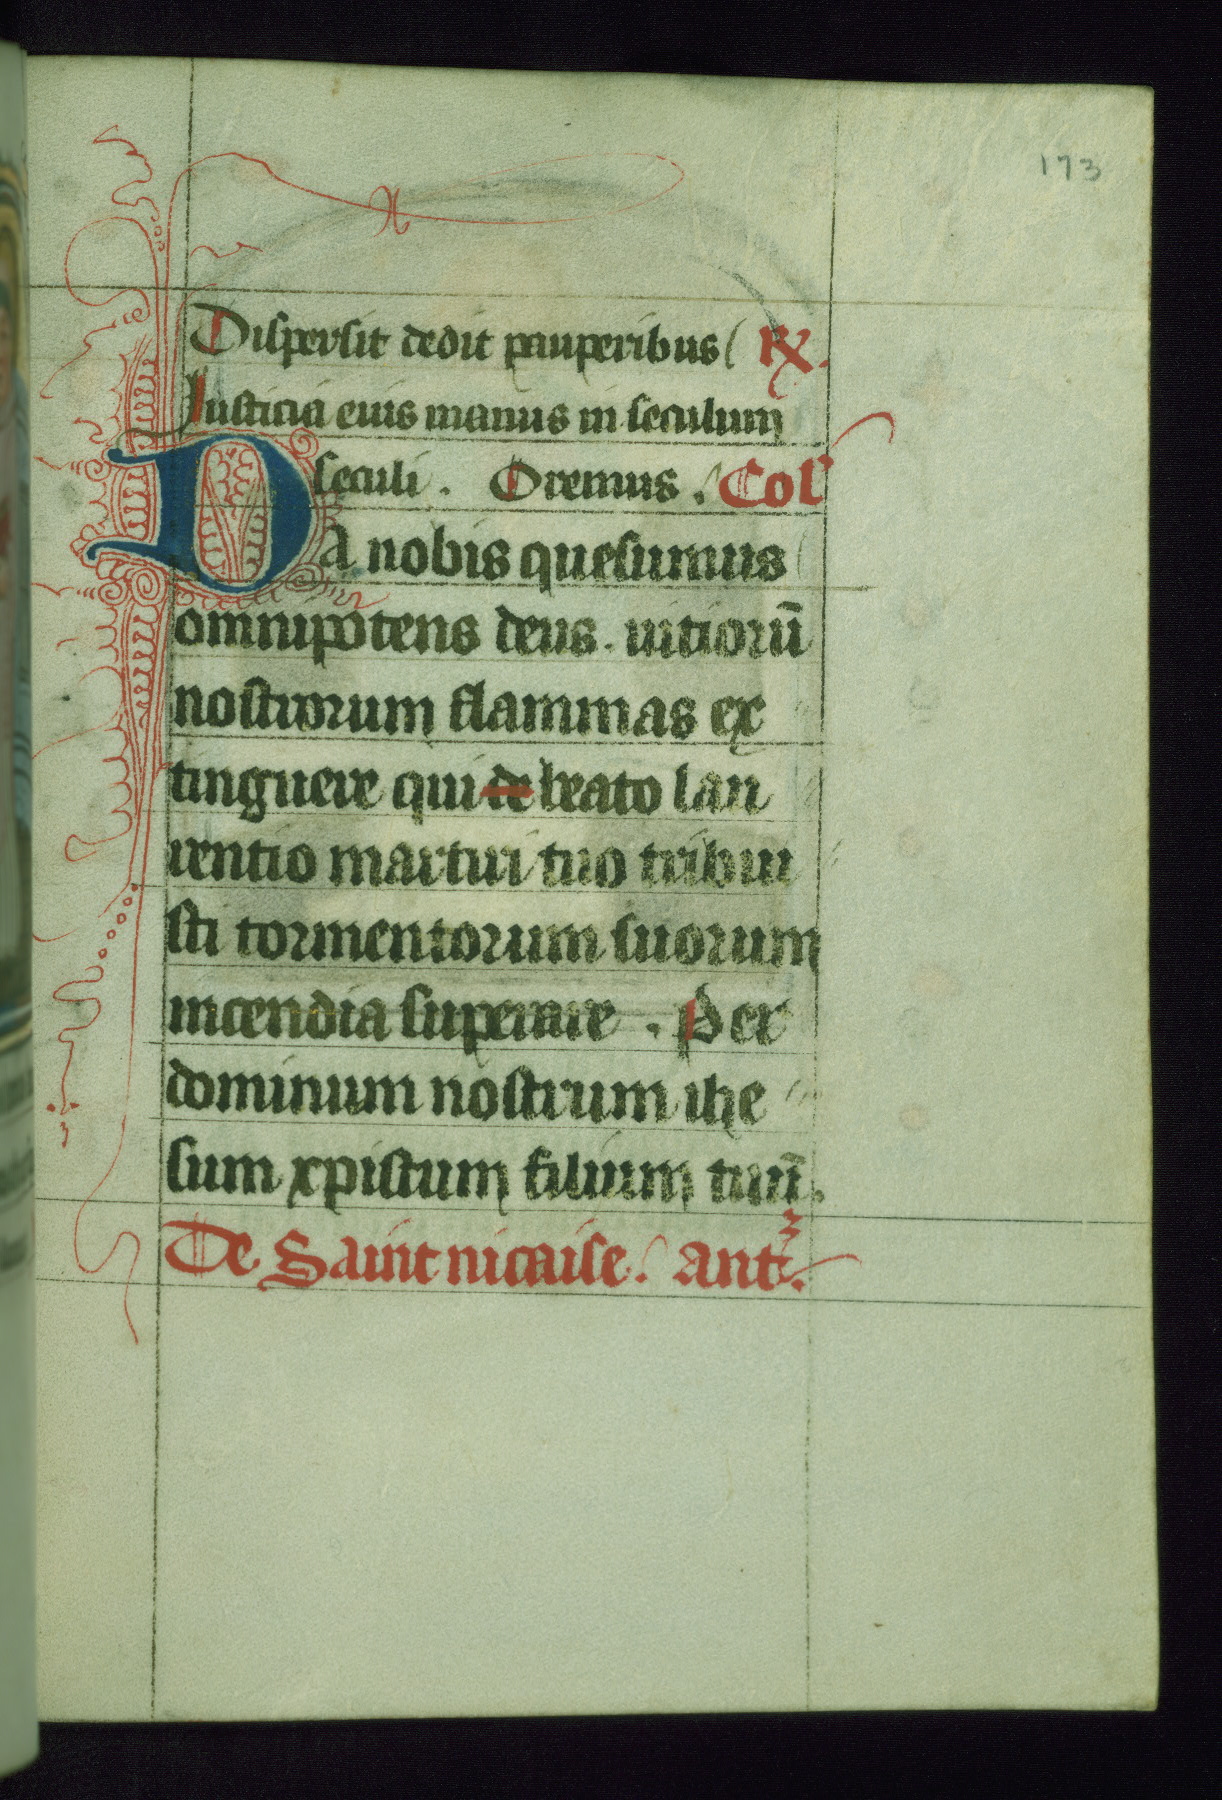 173
Dispersit dedit pauperibus ℟.
Iusticia eius manus in seculum
seculi. Oremus. Col'
DA nobis quesumus
omnipotens deus. uitiorū
nostrorum flammas ex
tinguere qui de beato lau
rentio martiri tuo tribui
sti tormentorum suorum
incendia superare. Per
dominum nostrum ihe
sum xpistum filium tuū.
De Saint nicaise. ant.